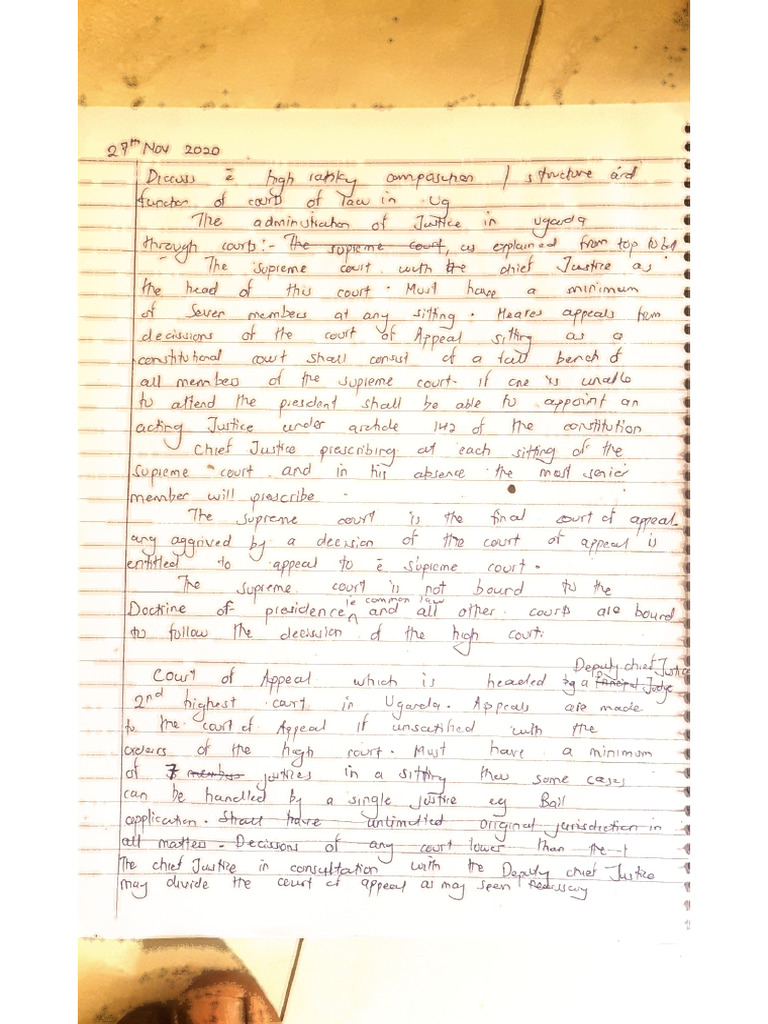 27th Nov 2020
Discuss ē high composition / structure and
function of courts of law in Ug
The administration of Justice in Uganda
through courts:- The supreme court, as explained from top to bot
The supreme court with the chief Justice as
the head of this court. Must have a minimum
of Seven members at any sitting. Heares appeals from
decissions of the court of Appeal sitting as a
constitutional court shall consist of a full bench of
all members of the supreme court. if one is unable
to attend the president shall be able to appoint an
acting Justice under article 142 of the constitution
Chief Justice prescribing at each sitting of the
supreme court and in his absence the most senior
member will prescribe.
The supreme court is the final court of appeal
any aggrived by a decission of the court of appeal is
entitled to appeal to ē supreme court.
The supreme court is not bound to the
ie common law
Doctrine of presidence and all other courts are bound
to follow the decission of the high court:
Deputy chief Justice
Court of Appeal which is headed by a Principal Judge
2nd highest court in Uganda. Appeals are made
to the court of Appeal if unsatified with the
orders of the high court. Must have a minimum
of 7 members justices in a sitting thou some cases
can be handled by a single justice eg Bail
application. Shall have unlimited original jurisdiction in
all matters - Decissions of any court lower than the
The chief Justice in consultation with the Deputy chief Justice
may divide the court of appeal as may seen necessary